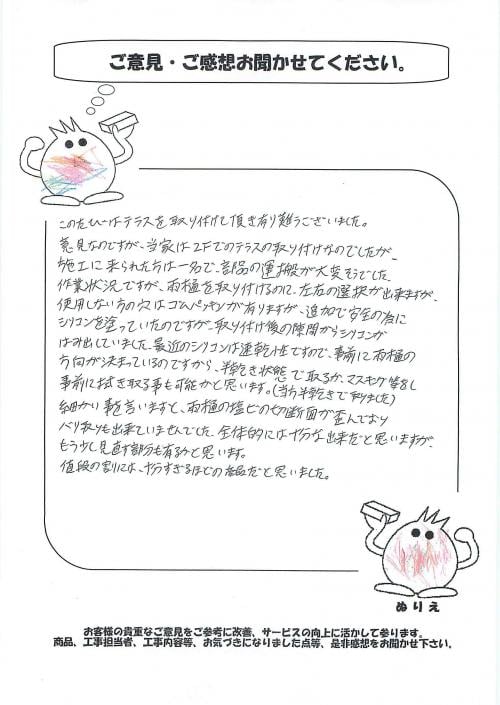 ご意見・ご感想お聞かせてください。
このたびはテラスを取り付けて頂き有り難うございました。
意見なのですが、当家は2Fでのテラスの取り付けなのでしたが、
施工に来られた方は一名で、部品の運搬が大変そうでした。
作業状況ですが、雨樋を取り付けるのに、左右の選択が出来ますが、
使用しない方の穴はゴムパッキンが有りますが、追加で安全の為に
シリコンを塗っていたのですが、取り付け後の隙間からシリコンが
はみ出していました。最近のシリコンは速乾性ですので、事前に雨樋の
方向が決まっているのですから、半乾き状態で取るか、マスキング等し
事前に拭き取る事も可能かと思います。(当方半乾きで取りました)
細かい事を言いますと、雨樋の塩ビの切断面が歪んでおり
バリ取りも出来ていませんでした。全体的には十分な出来だと思いますが、
もう少し見直す部分も有るかと思います。
値段の割りには、十分すぎるほどの商品だと思いました。
ぬりえ
お客様の貴重なご意見をご参考に改善、サービスの向上に活かして参ります。
商品、工事担当者、工事内容等、お気づきになりました点等、是非感想をお聞かせ下さい。